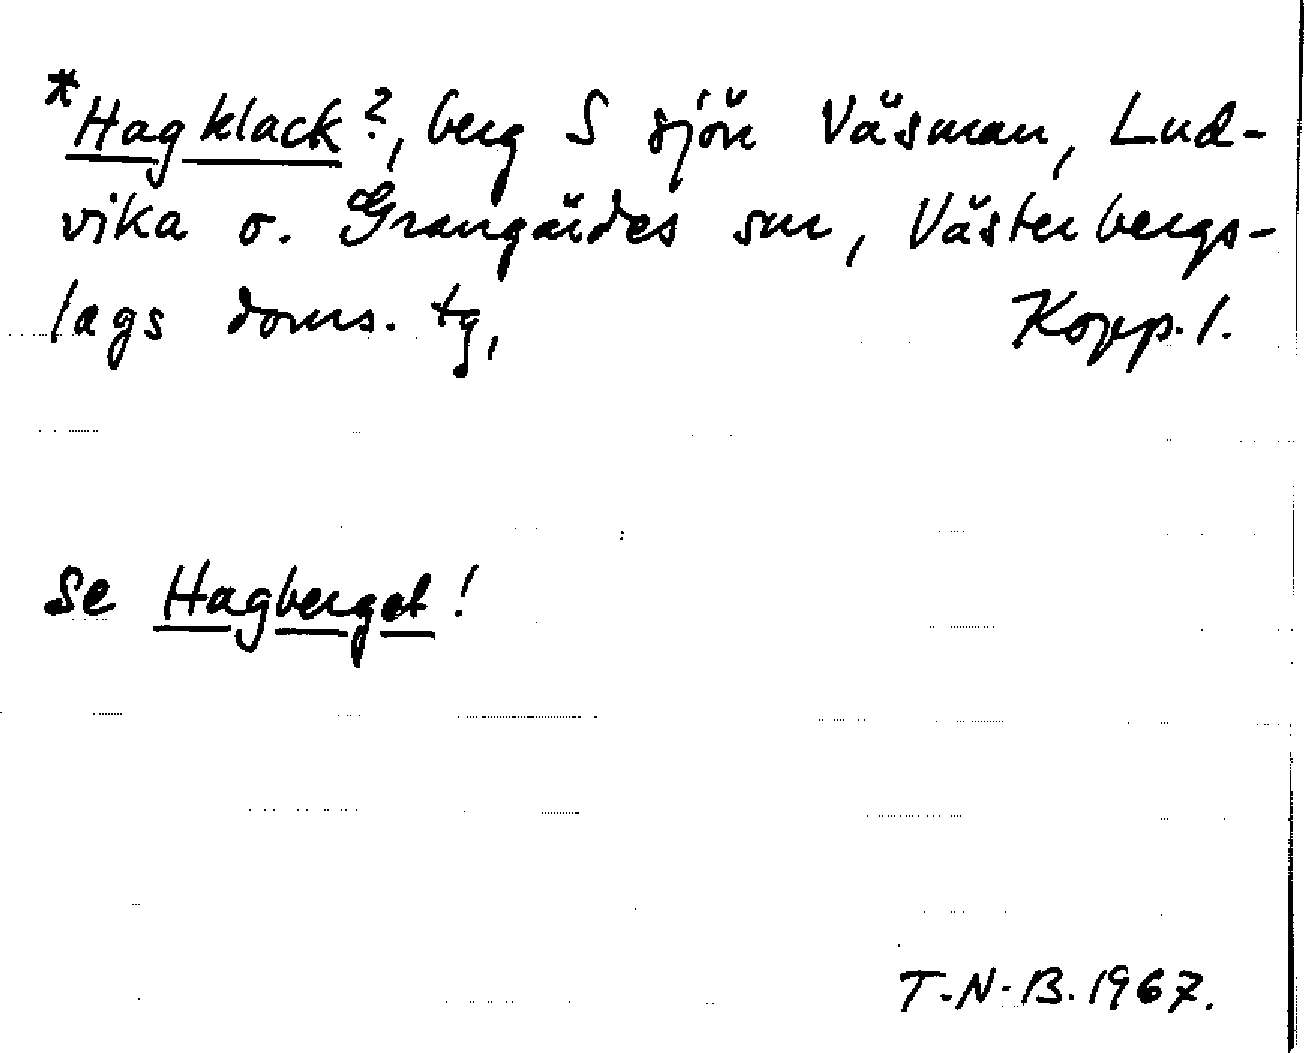 *Hagklack?, berg S sjön Väsman, Lud-
vika o. Grangärdes snr, Västerbergs-
lags doms. tg, Kopp. l.
Se Hagberget!
T-N-B. 1967.